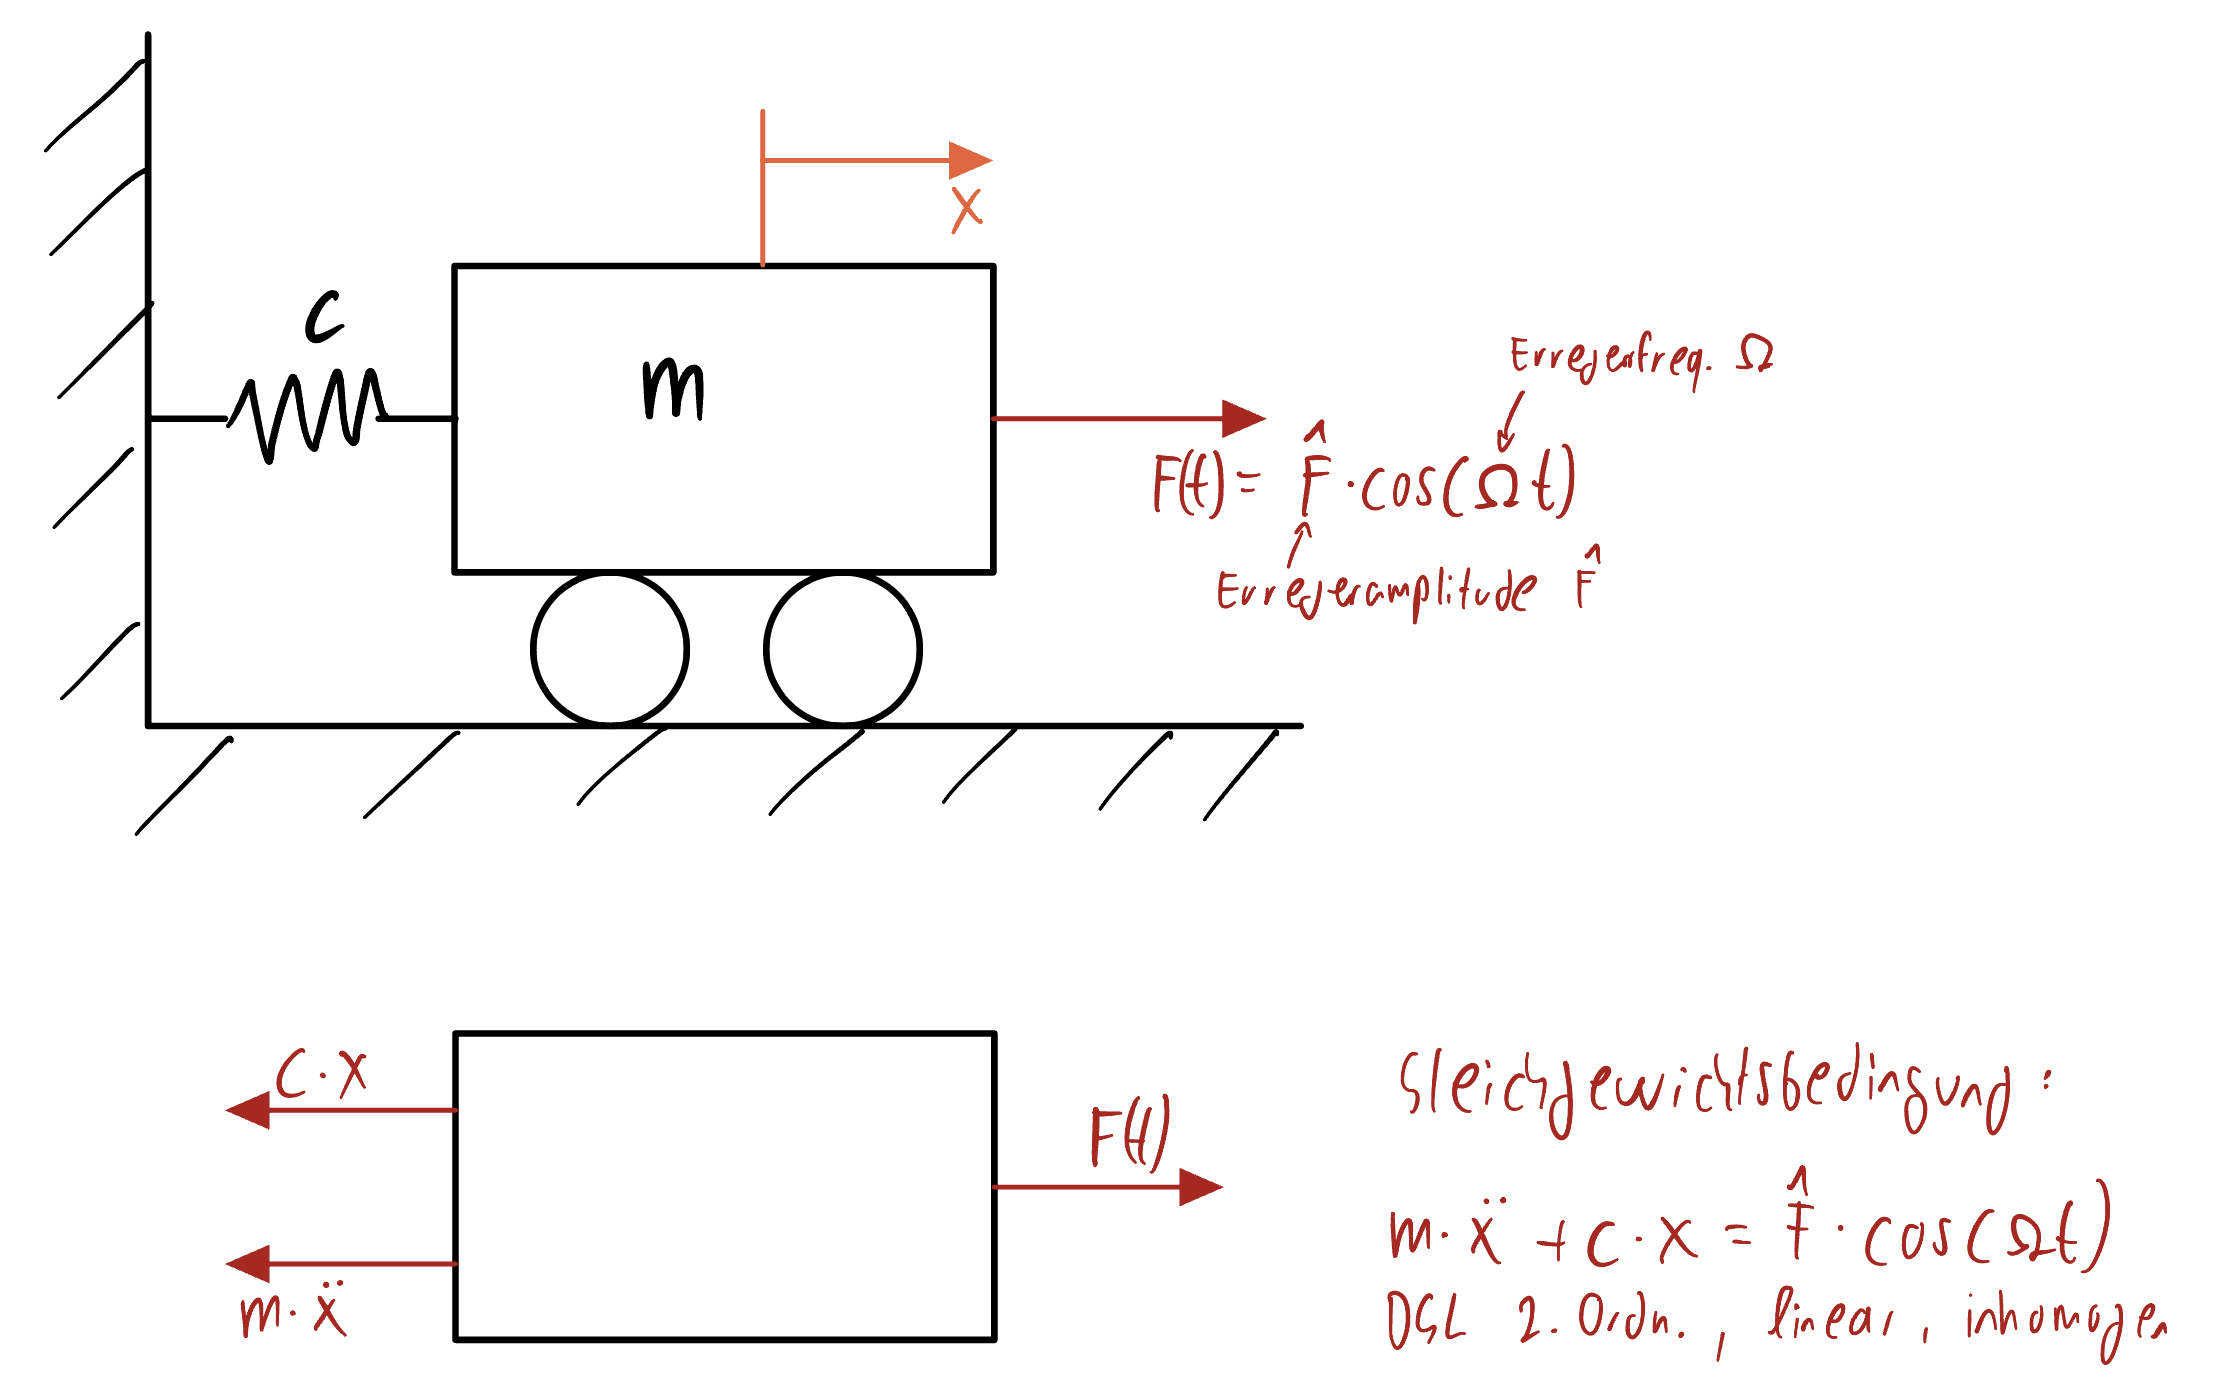 x
c
m
Erregerfreq. Ω
F(t) = F̂ · cos(Ωt)
Erregeramplitude F̂
c · x
F(t)
m · ẍ
Gleichgewichtsbedingung:
m · ẍ + c · x = F̂ · cos(Ωt)
DGL 2. Ordn., linear, inhomogen